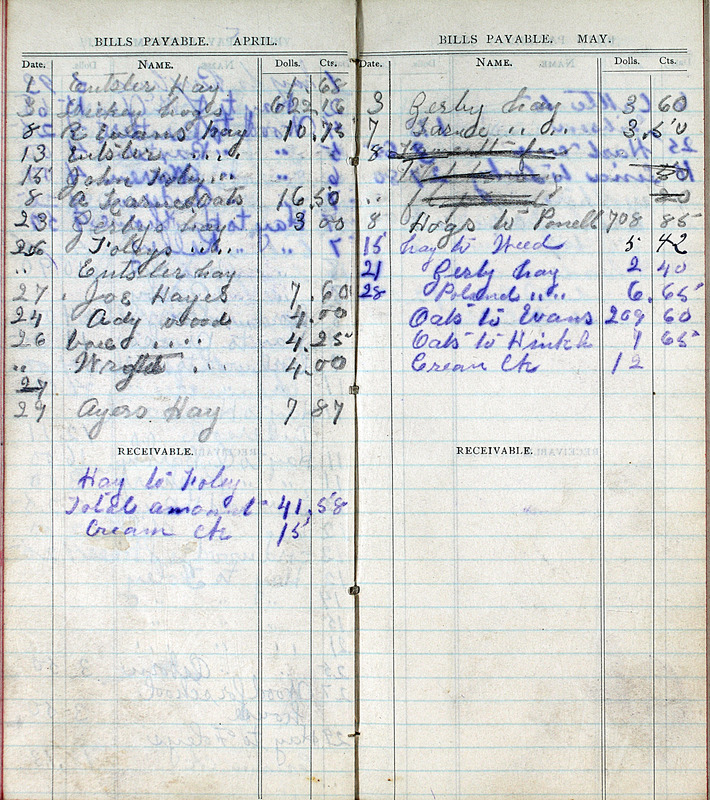 BILLS PAYABLE. APRIL.
Date. NAME. Dolls. Cts.
1 Entsler Hay 1 68
3 hogs 622 16
8 R Evans hay 10.75
13 Entsler " "
15 John Foley " "
8 A Learned Oats 16.50
23 Gerbys hay 3 00
26 Foleys " "
" Entsler hay
27 Joe Hayes 7.60
24 Ady wood 4.00
26 " " 4.25
" Wright " 4.00
27
29 Ayers Hay 7 87
RECEIVABLE.
Hay to Foley
Total amount 41.58
Cream Ck 15
BILLS PAYABLE. MAY.
Date. NAME. Dolls. Cts.
3 Gerby hay 3 60
7 " " 3.50
8
"
8 Hogs to Powell 708 85
15 hay to Weed 5 42
21 Gerby hay 2 40
28 Poland " " 6.65
Oats to Evans 209 60
Oats to Hinkle 1 65
Cream Ck 12
RECEIVABLE.